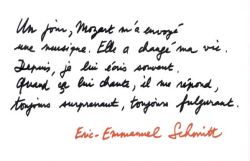 Un jour, Mozart m'a envoyé
une musique. Elle a changé ma vie.
Depuis, je lui écris souvent.
Quand ça lui chante, il me répond,
toujours surprenant, toujours fulgurant.
Eric-Emmanuel Schmitt